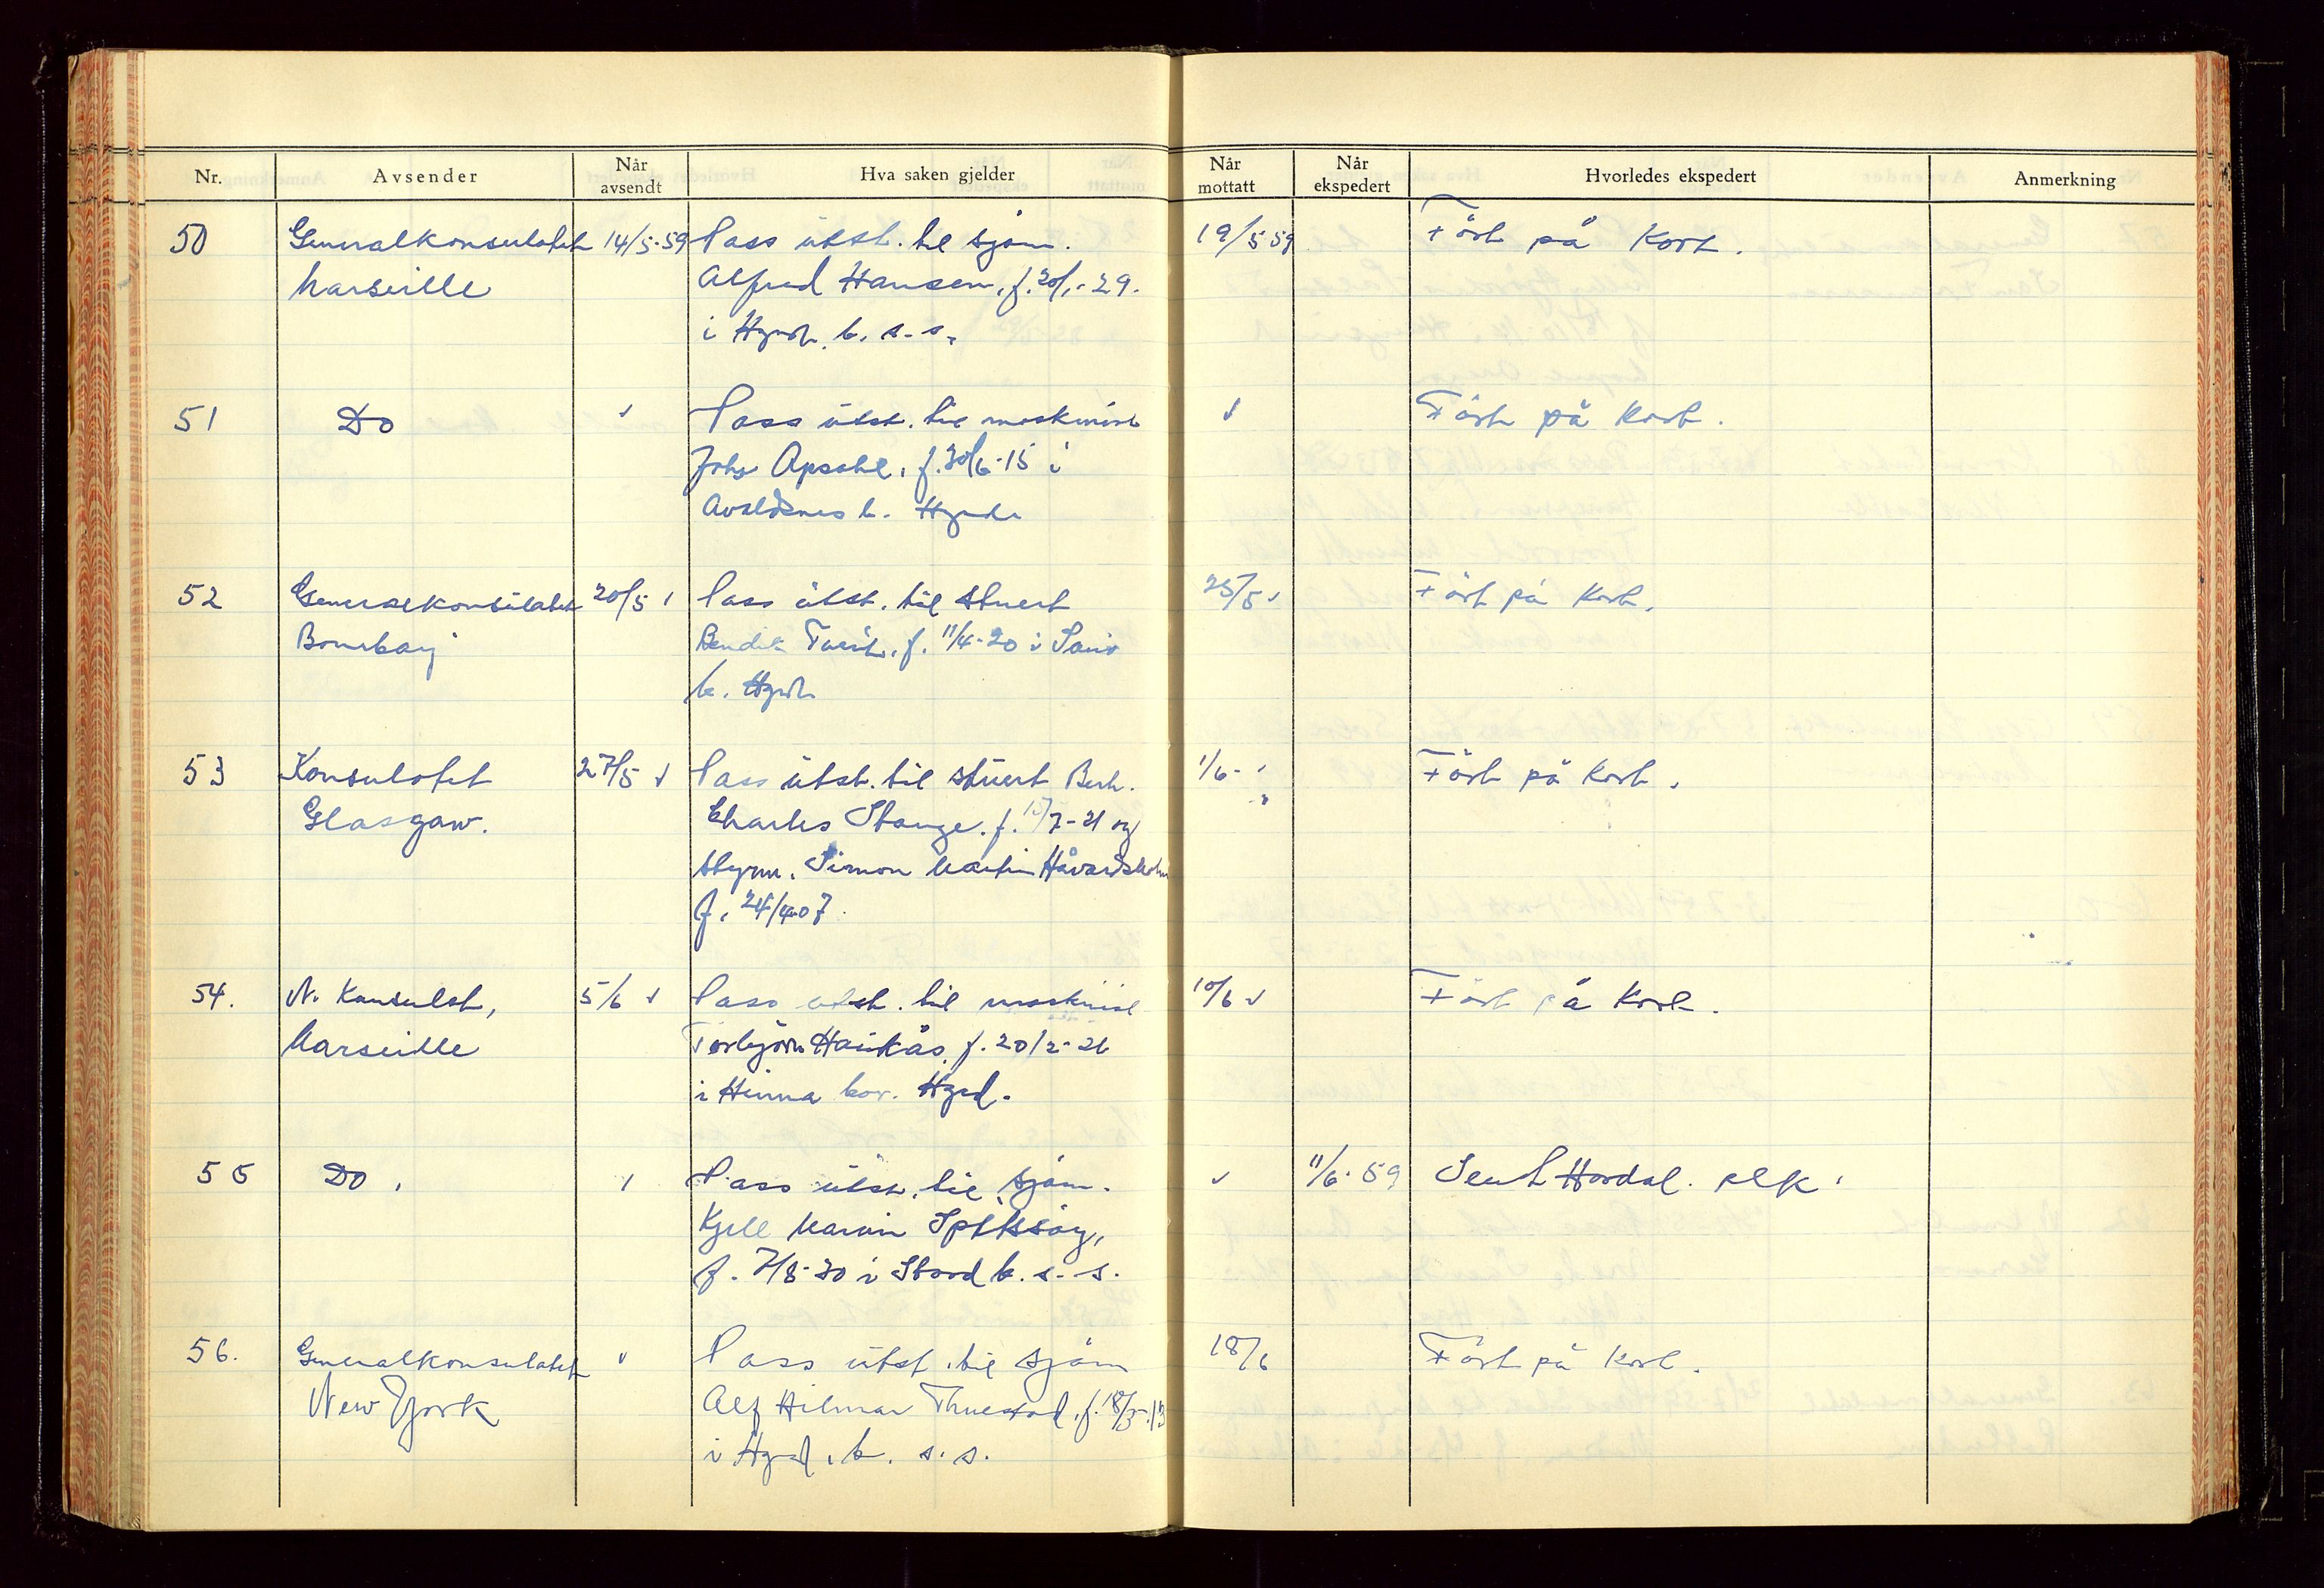 Nr. Avsender Når avsendt Hva saken gjelder Når mottatt Når ekspedert Hvorledes ekspedert Anmerkning
50 Generalkonsulatet 14/5-59 Pass utst. til sjøm. 19/5 59 Ført på Kort.
Marseille Alfred Hansen, f. 20/1-29.
i Hgsd. b. s.s.
51 Do " Pass utst. til maskinist " Ført på kort.
John Apsahl, f. 30/6-15 i
Avaldsnes b. Hgsd.
52 Generalkonsulatet 20/5 " Pass utst. til stuert 25/5 " Ført på kort.
Bombay Bendik f. 11/4-20 i
b. Hgsd.
53 Konsulatet 27/5 " Pass utst. til stuert Bert. 1/6- " Ført på kort.
Glasgaw. Charles Stange. f. /7-21 og
styrm. Simon Martin Håvardsholm
f. 24/4-07.
54. N. Konsulat, 5/6 " Pass utst. til maskinist 10/6 " Ført på Kort.
Marseille Torbjørn Haukås f. 20/2-26
i Hinna bor. Hgsd.
55 Do. " Pass utst. til sjøm. " 11/6-59 Sent Hordal. plk.
Kjell Marvin Spissøy,
f. 7/8-30 i Stord b. s.s.
56. Generalkonsulatet " Pass utst. til sjøm 18/6 Ført på kort.
New York Alf Hilmar Thuestad, f. 18/3-13
i Hgsd. b. s.s.